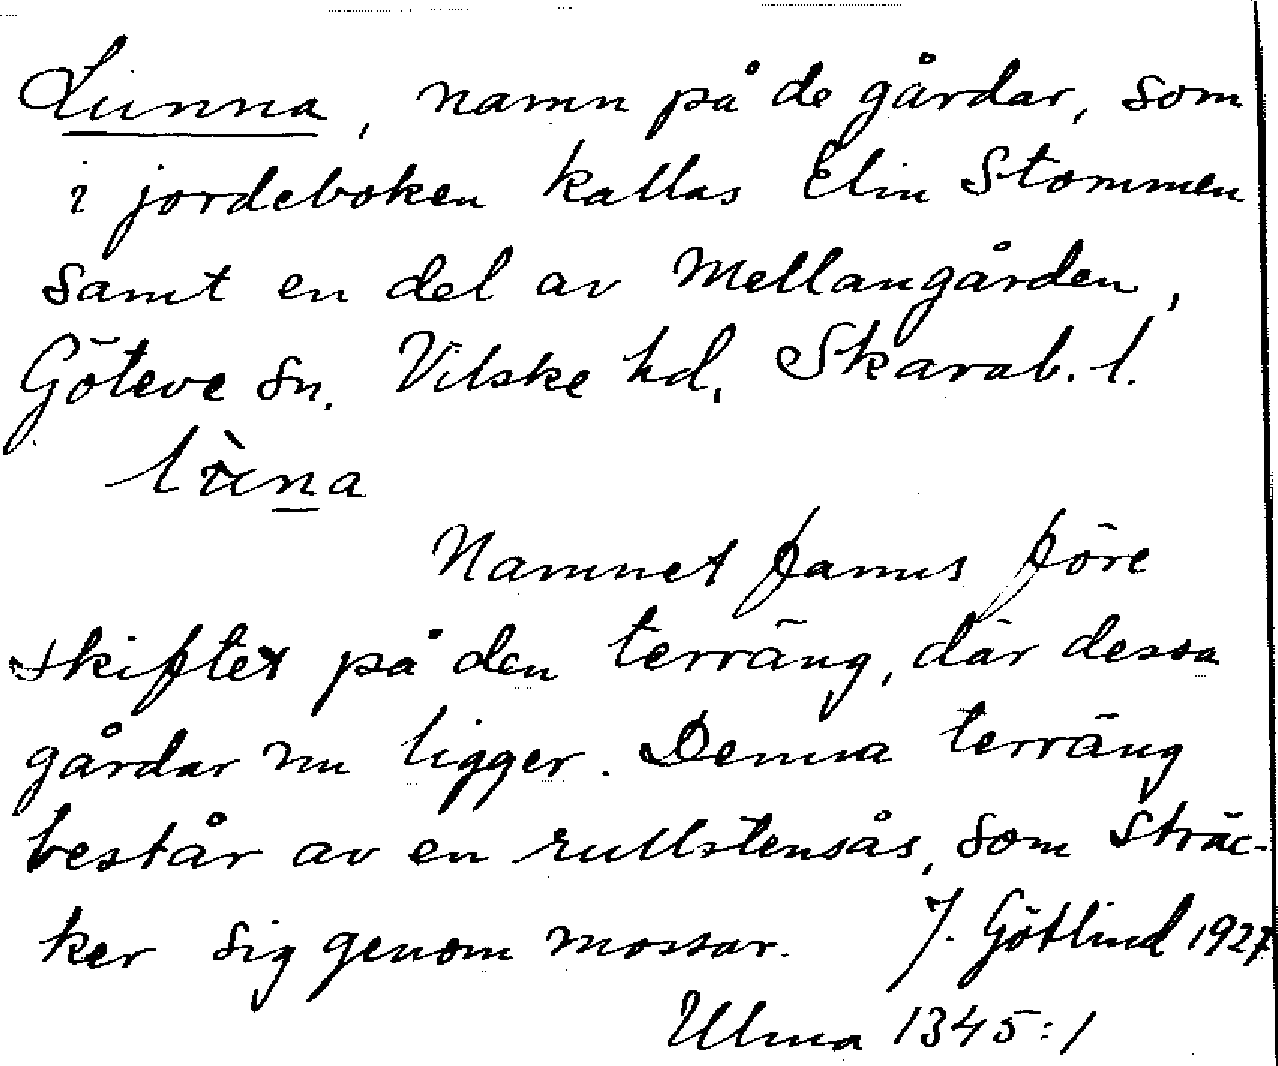 Lunna, namn på de gårdar, som
i jordeboken kallas Elin Stommen
samt en del av Mellangården,
Göteve sn. Vilske hd, Skarab. l.
lùna
Namnet fanns före
skiftet på den terräng, där dessa
gårdar nu ligger. Denna terräng
består av en rullstensås, som sträc-
ker sig genom mossar. J. Götlind 1927
Ulma 1345:1